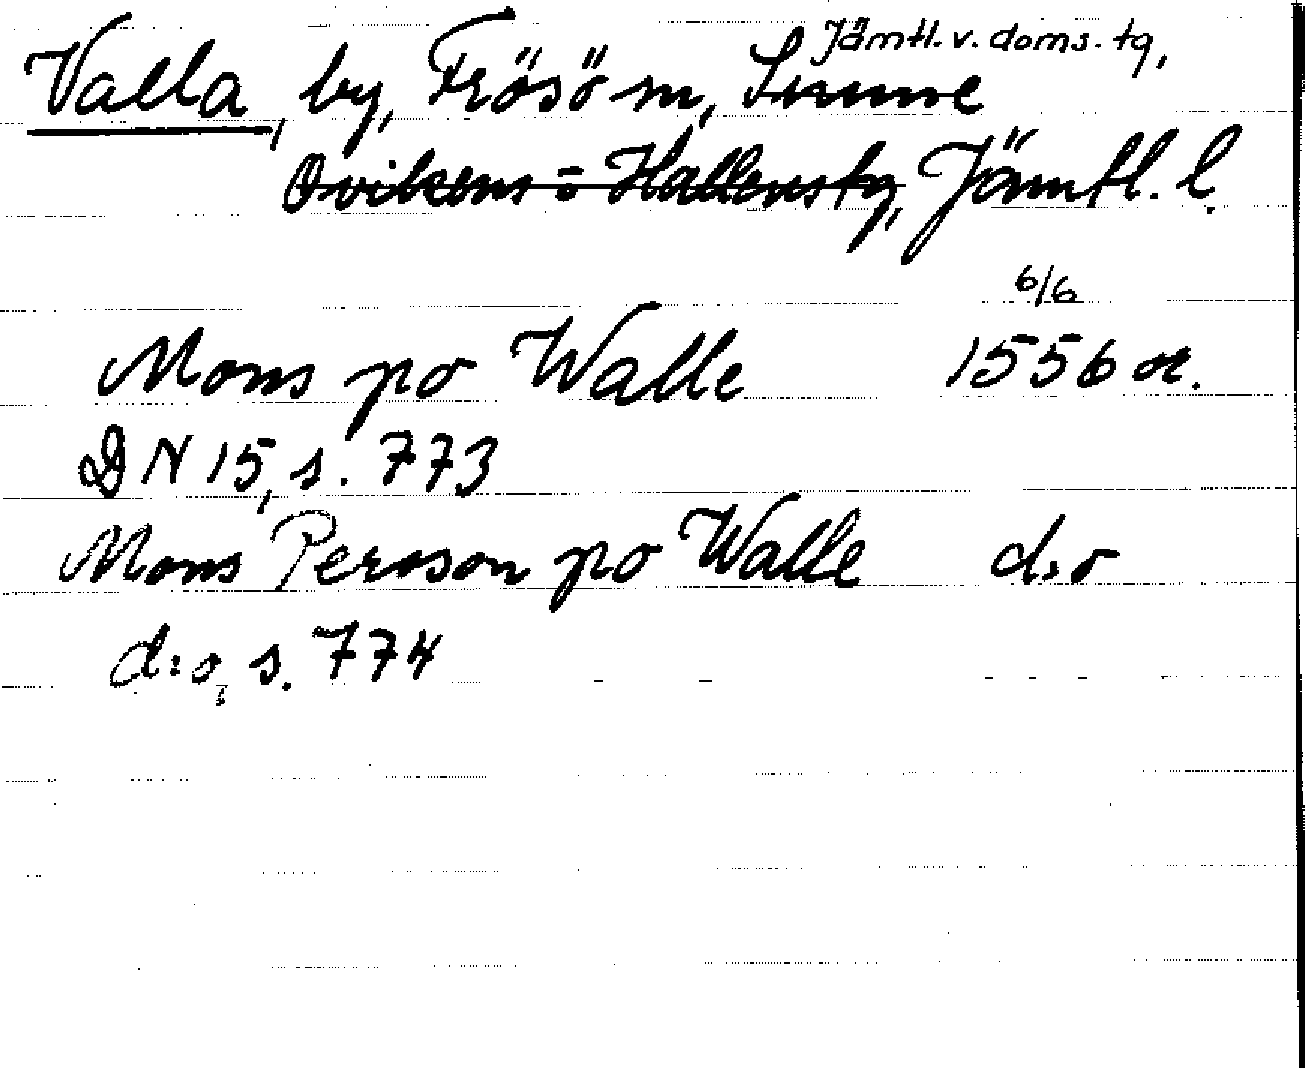 Jämtl. v. doms. tg,
Valla, by, Frösö sn, Sunne
Ovikens o Hallens tg, Jämtl. l.
6/6
Mons po Walle 1556 or.
DN 15, s. 773
Mons Persson po Walle d:o
d:o, s. 774